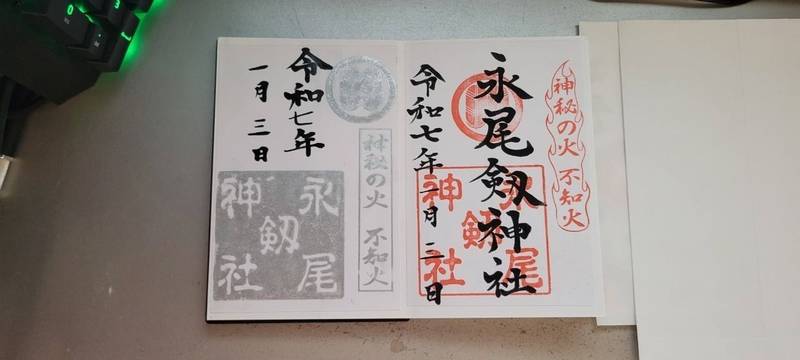 神秘の火 不知火
永尾剱神社
永尾
剱
神社
令和七年一月三日
神秘の火 不知火
令和七年
一月三日
永尾
剱
神社